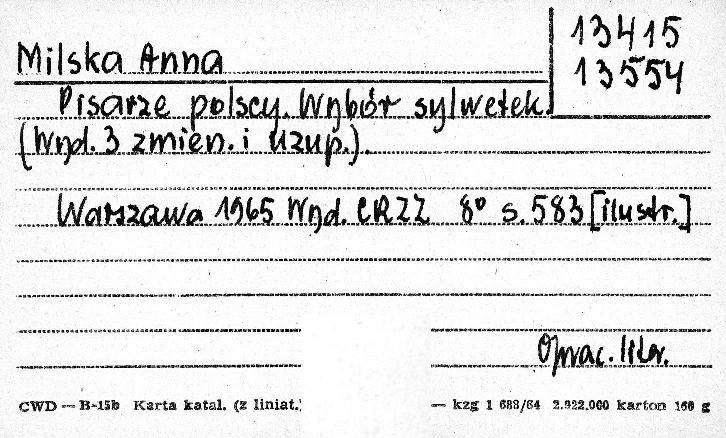 13415
13554
Milska Anna
Pisarze polscy. Wybór sylwetek.
(Wyd. 3 zmien. i uzup.).
Warszawa 1965 Wyd. CRZZ 8° s. 583 [ilustr.]
Oprac. liter.
CWD — B-15b Karta katal. (z liniat.) — kzg 1 683/64 2.922.000 karton 160 g